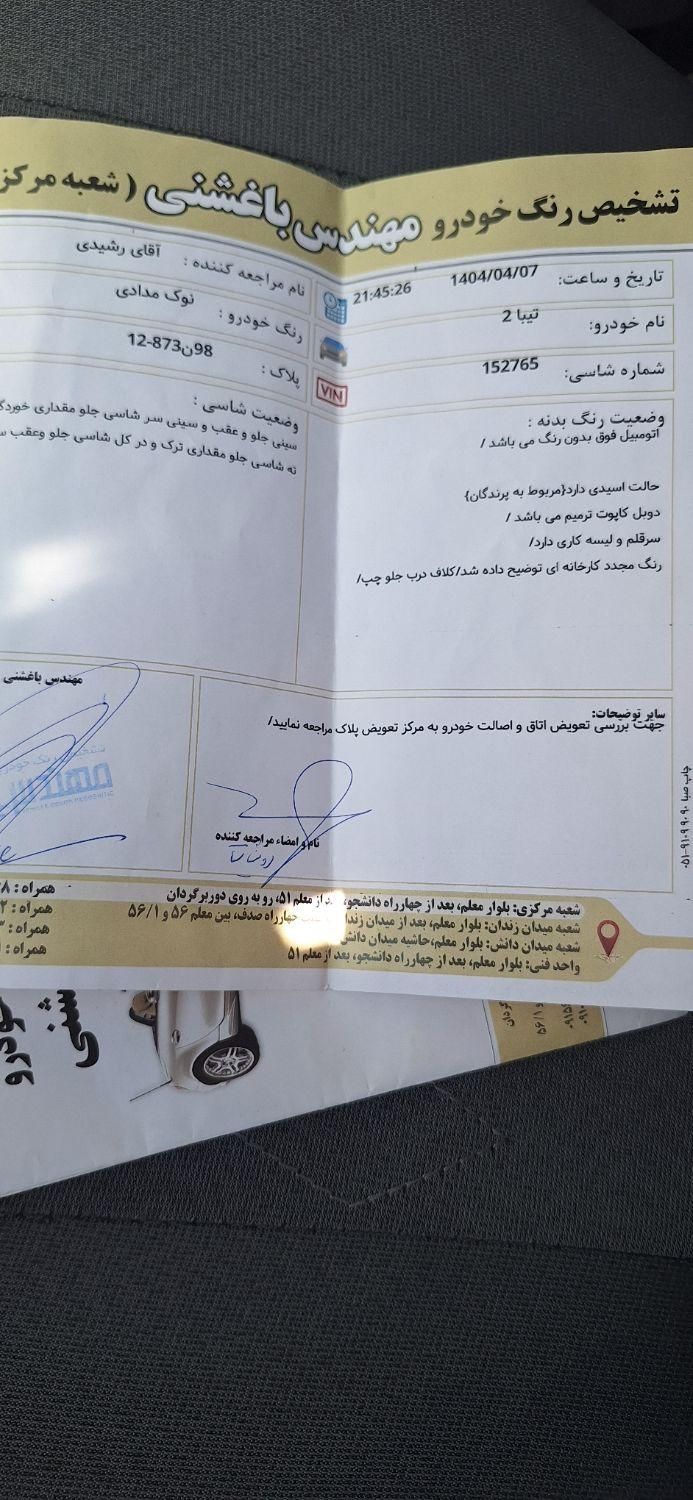 تشخیص رنگ خودرو مهندس باغشنی ( شعبه مرکز
تاریخ و ساعت: 1404/04/07 21:45:26
نام مراجعه کننده : آقای رشیدی
نام خودرو: تیبا 2
رنگ خودرو : نوک مدادی
شماره شاسی: 152765
VIN
پلاک : 98ن873-12
وضعیت رنگ بدنه :
اتومبیل فوق بدون رنگ می باشد /
حالت اسیدی دارد{مربوط به پرندگان}
دوبل کاپوت ترمیم می باشد /
سرقلم و لیسه کاری دارد/
رنگ مجدد کارخانه ای توضیح داده شد/کلاف درب جلو چپ/
وضعیت شاسی :
سینی جلو و عقب و سینی سر شاسی جلو مقداری خوردگ
ته شاسی جلو مقداری ترک و در کل شاسی جلو وعقب س
سایر توضیحات:
جهت بررسی تعویض اتاق و اصالت خودرو به مرکز تعویض پلاک مراجعه نمایید/
نام و امضاء مراجعه کننده
مهندس باغشنی
تشخیص رنگ خودرو
مهندس
چاپ صبا ۹۰ ۹۰ ۹۱۰۹-۰۵۱
شعبه مرکزی: بلوار معلم، بعد از چهارراه دانشجو، بعد از معلم ۵۱، رو به روی دوربرگردان
شعبه میدان زندان: بلوار معلم، بعد از میدان زندان، چهارراه صدف، بین معلم ۵۶ و ۵۶/۱
شعبه میدان دانش: بلوار معلم،حاشیه میدان دانش
واحد فنی: بلوار معلم، بعد از چهارراه دانشجو، بعد از معلم ۵۱
همراه : ۸
همراه : ۲
همراه : ۳
همراه : ۱